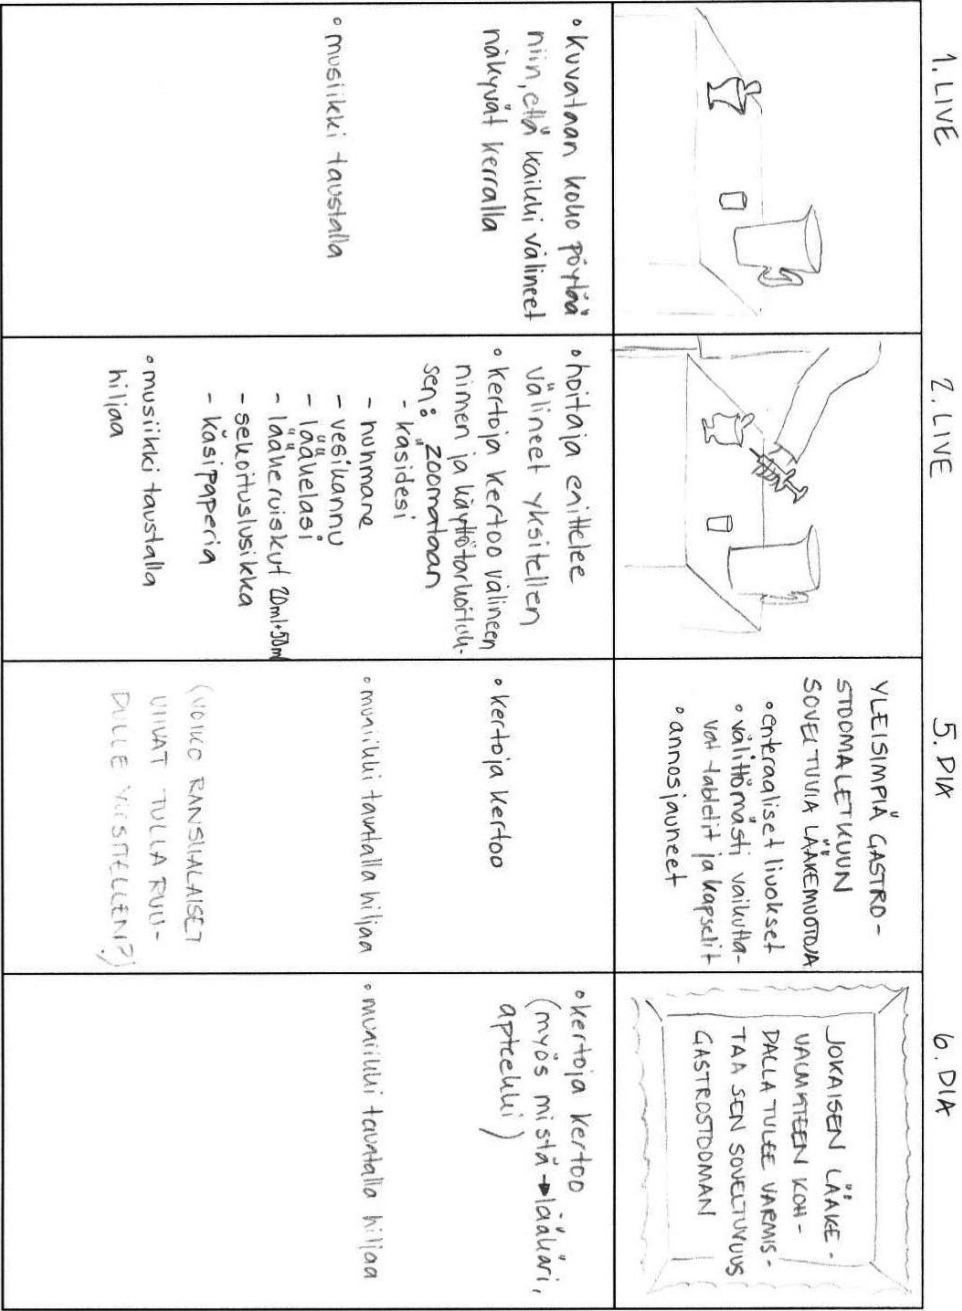 1. LIVE
• kuvataan koko pöytää
niin, että kaikki välineet
näkyvät kerralla
• musiikki taustalla
2. LIVE
• hoitaja esittelee
välineet yksitellen
• kertoja kertoo välineen
nimen ja käyttötarkoituk-
sen: zoomataan
- käsidesi
- huhmare
- vesikannu
- lääkelasi
- lääkeruiskut 20ml+50ml
- sekoituslusikka
- käsipaperia
• musiikki taustalla
hiljaa
5. DIA
YLEISIMPIÄ GASTRO-
STOOMALETKUUN
SOVELTUVIA LÄÄKEMUOTOJA
• enteraaliset liuokset
• välittömästi vaikutta-
vat tabletit ja kapselit
• annosjauheet
• kertoja kertoo
• musiikki taustalla hiljaa
(VOIKO RANSKALAISET
VIIVAT TULLA RUU-
DULLE YKSITELLEN?)
6. DIA
JOKAISEN LÄÄKE-
VALMISTEEN KOH-
DALLA TULEE VARMIS-
TAA SEN SOVELTUVUUS
GASTROSTOOMAN
• kertoja kertoo
(myös mistä → lääkäri,
apteekki)
• musiikki taustalla hiljaa